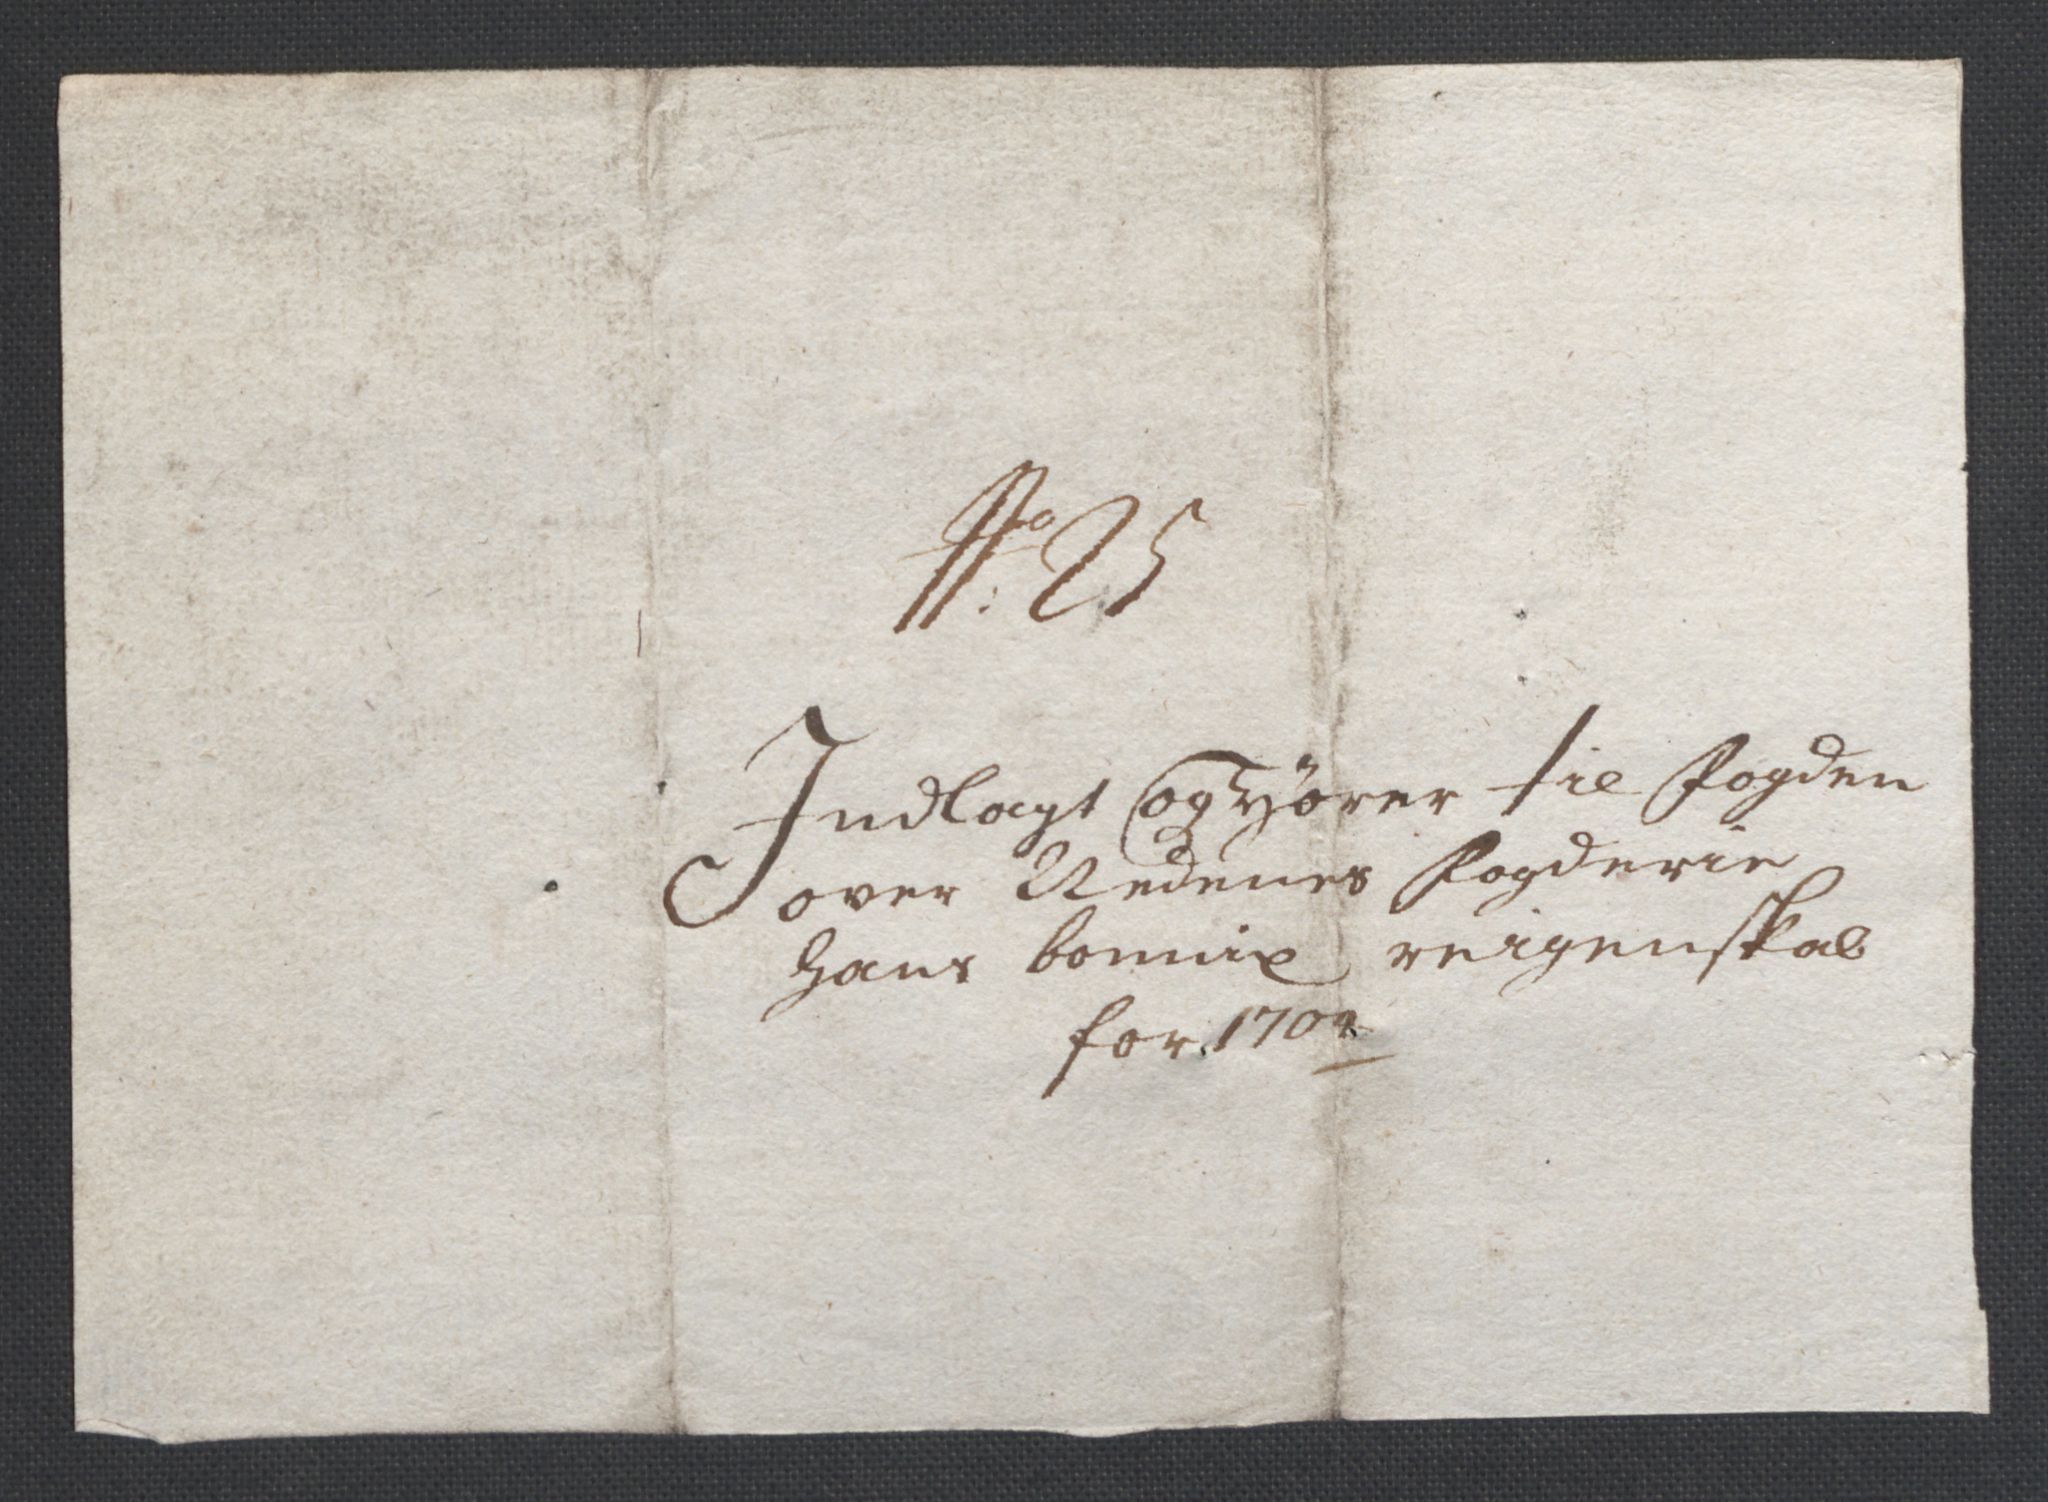 No: 25
Indlagt og hörer til Fogden
over Nedenes Fogderie
Hans bonnix reigenskab
for 1702